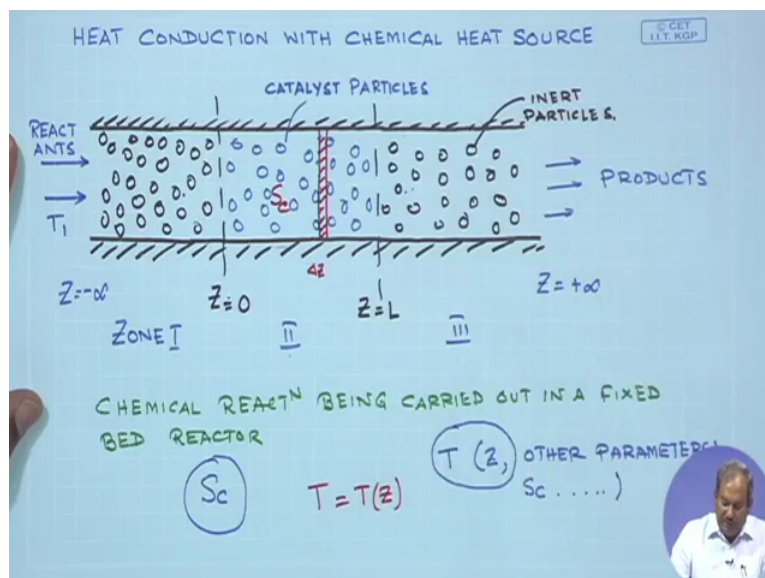 HEAT CONDUCTION WITH CHEMICAL HEAT SOURCE
© CET
I.I.T. KGP
CATALYST PARTICLES
INERT
PARTICLES.
REACT
ANTS
T1
Sc
PRODUCTS
ΔZ
Z=-∞
Z=0
Z=L
Z=+∞
ZONE I
II
III
CHEMICAL REACTN BEING CARRIED OUT IN A FIXED
BED REACTOR
Sc
T = T(Z)
T (Z, OTHER PARAMETERS,
Sc .....)